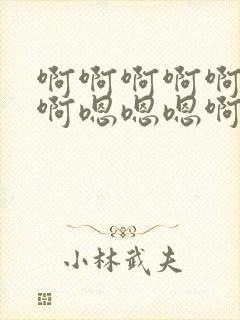 啊啊啊啊啊
啊嗯嗯嗯啊
小林武夫